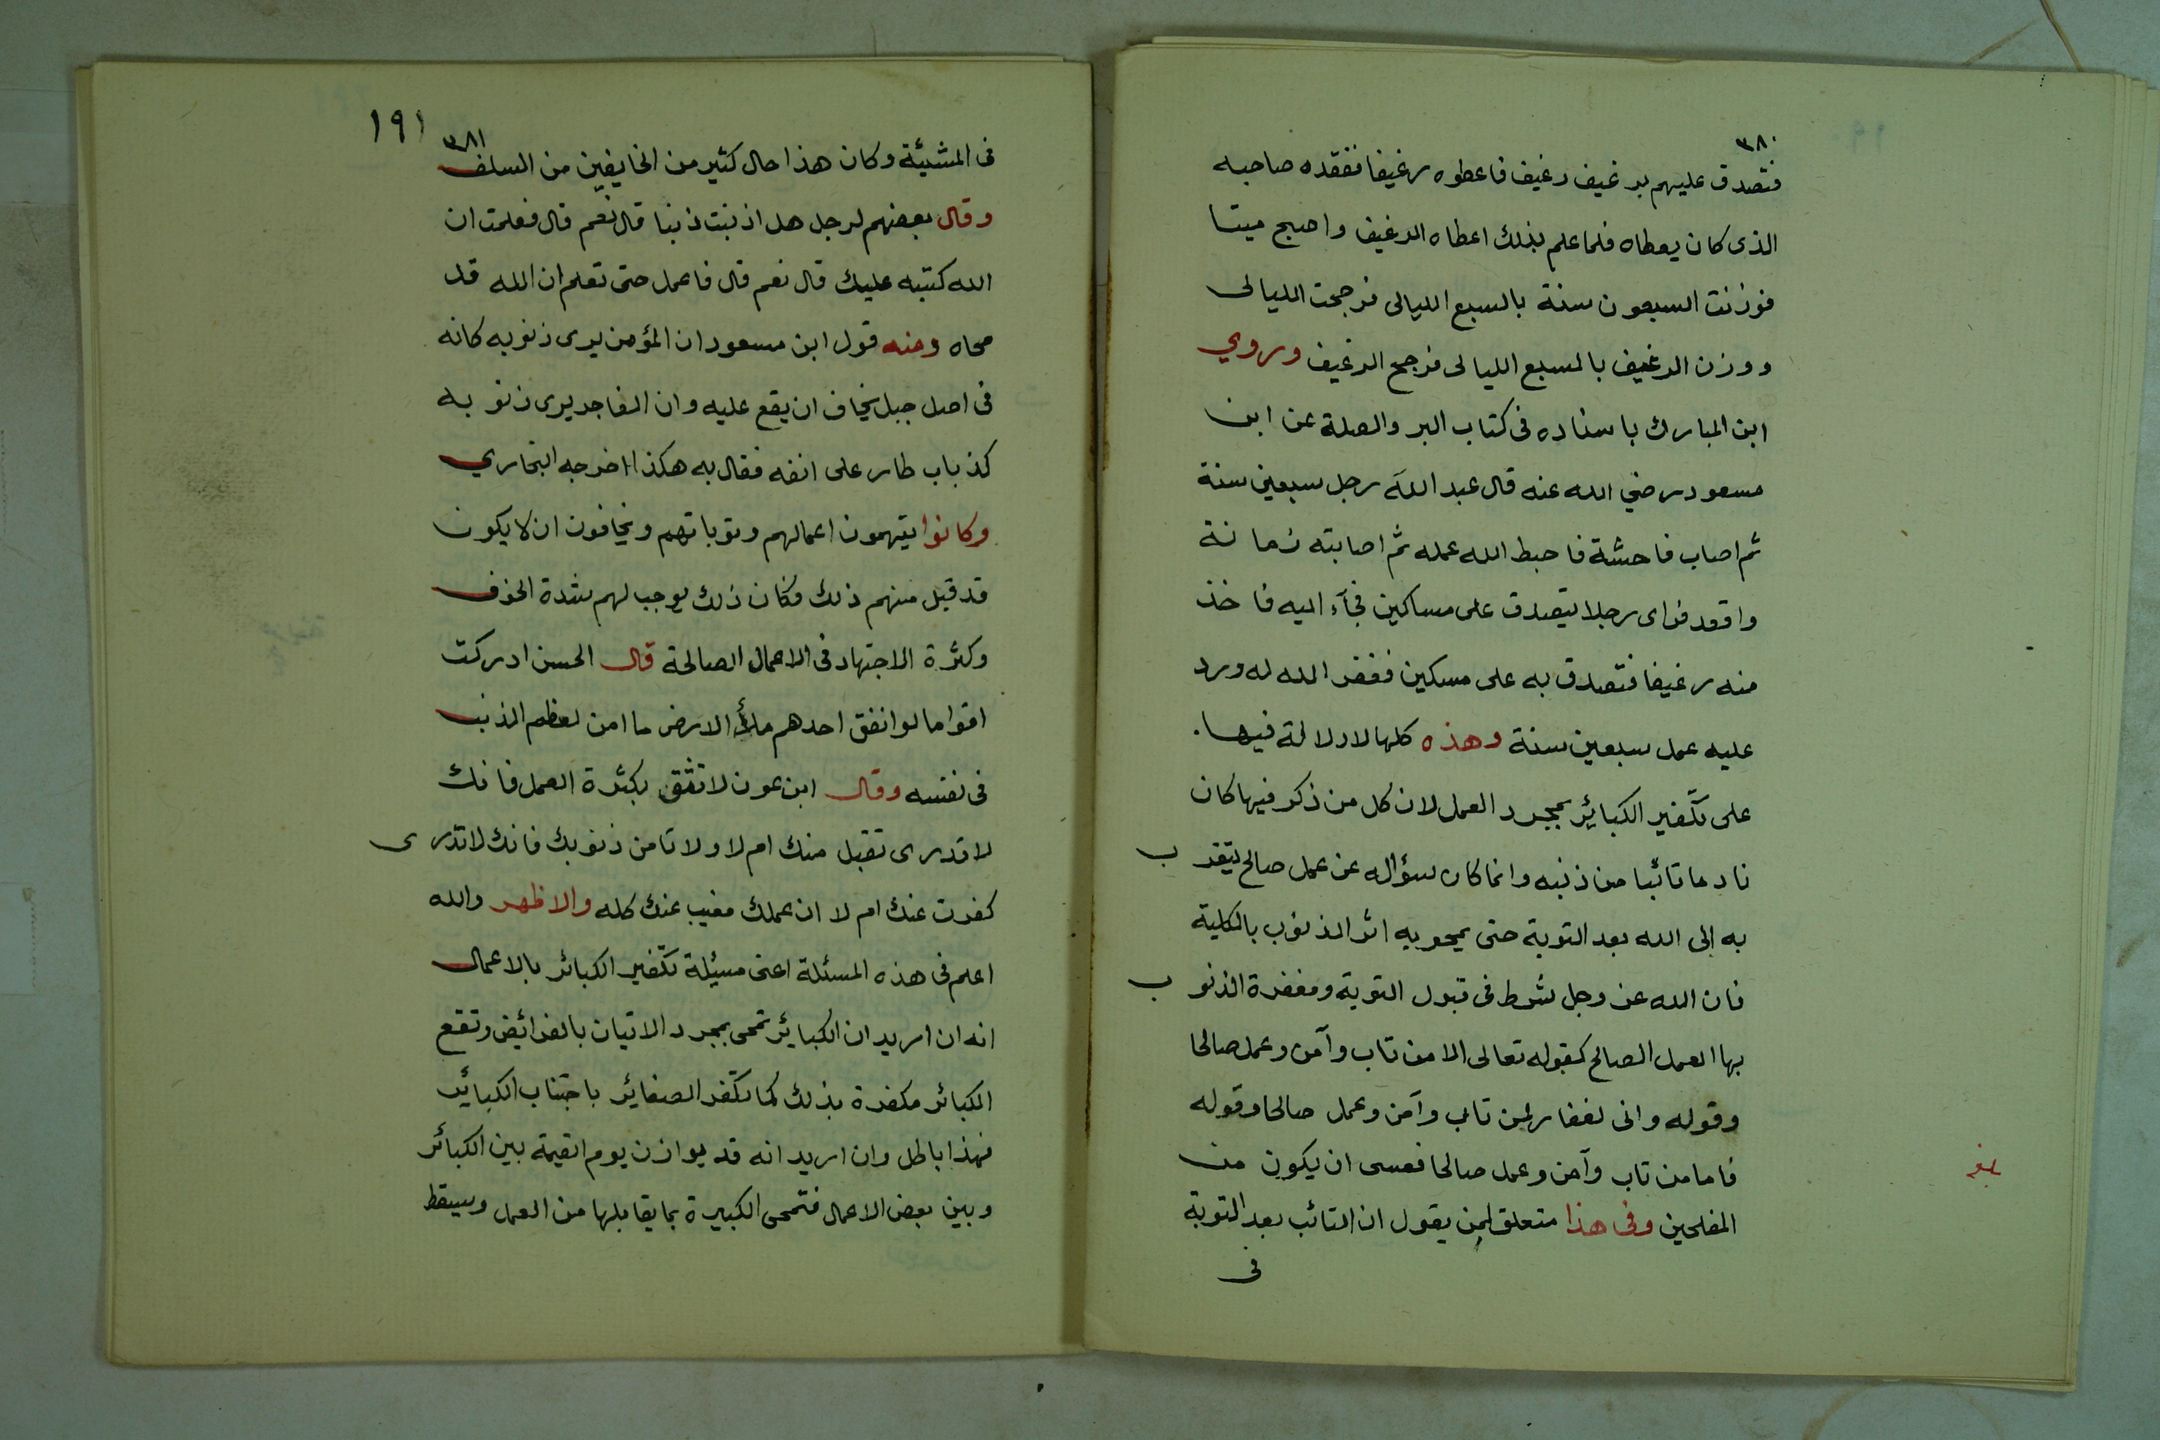 ٣٨٠
فتصدق عليهم برغيف رغيف فاعطوه رغيفا ففقده صاحبه
الذى كان يعطاه فلما علم بذلك اعطاه الرغيف واصبح ميتا
فوزنت السبعون سنة بالسبع الليالى فرجحت الليالى
ووزن الرغيف بالسبع الليالى فرجح الرغيف وروي
ابن المبارك باسناده فى كتاب البر والصلة عن ابن
مسعود رضي الله عنه قال عبد اللهَ رجل سبعين سنة
ثم اصاب فاحشة فاحبط الله عمله ثم اصابته زمانة
واقعد فراى رجلا يتصدق على مساكين فجآء اليه فاخذ
منه رغيفا فتصدق به على مسكين فغفر الله له ورد
عليه عمل سبعين سنة وهذه كلها لا دلالة فيها
على تكفير الكبائر بمجرد العمل لان كل من ذكر فيها كان
نادما تائبا من ذنبه وانما كان سؤاله عن عمل صالح يتقرب
به إلى الله بعد التوبة حتى يمحو به اثر الذنوب بالكلية
فان الله عز وجل شرط فى قبول التوبة ومغفرة الذنوب
بها العمل الصالح كقوله تعالى الا من تاب وآمن وعمل صالحا
وقوله وانى لغفار لمن تاب وآمن وعمل صالحا وقوله
فاما من تاب وآمن وعمل صالحا فعسى ان يكون من
المفلحين وفى هذا متعلق لمن يقول ان التائب بعد التوبة
فى
١٩١
٣٨١
فى المشيئة وكان هذا حال كثير من الخايفين من السلف
وقال بعضهم لرجل هل اذنبت ذنبا قال نعم قال فعلمت ان
الله كتبه عليك قال نعم قال فاعمل حتى تعلم ان الله قد
محاه ومنه قول ابن مسعود ان المؤمن يرى ذنوبه كانه
فى اصل جبل يخاف ان يقع عليه وان الفاجر يرى ذنوبه
كذباب طار على انفه فقال به هكذا اخرجه البخاري
وكانوا يتهمون اعمالهم وتوباتهم ويخافون ان لا يكون
قد قبل منهم ذلك فكان ذلك يوجب لهم شدة الخوف
وكثرة الاجتهاد فى الاعمال الصالحة قال الحسن ادركت
اقواما لو انفق احدهم ملأ الارض ما امن لعظم الذنب
فى نفسه وقال ابن عون لا تثق بكثرة العمل فانك
لا تدرى تقبل منك ام لا ولا تامن ذنوبك فانك لا تدرى
كفرت عنك ام لا ان عملك مغيب عنك كله والاظهر والله
اعلم فى هذه المسئلة اعنى مسئلة تكفير الكبائر بالاعمال
انه ان اريد ان الكبائر تمحى بمجرد الاتيان بالفرائض وتقع
الكبائر مكفرة بذلك كما تكفر الصغائر باجتناب الكبائر
فهذا باطل وان اريد انه قد يوازن يوم القيمة بين الكبائر
وبين بعض الاعمال فتمحى الكبيرة بما يقابلها من العمل وسيقط